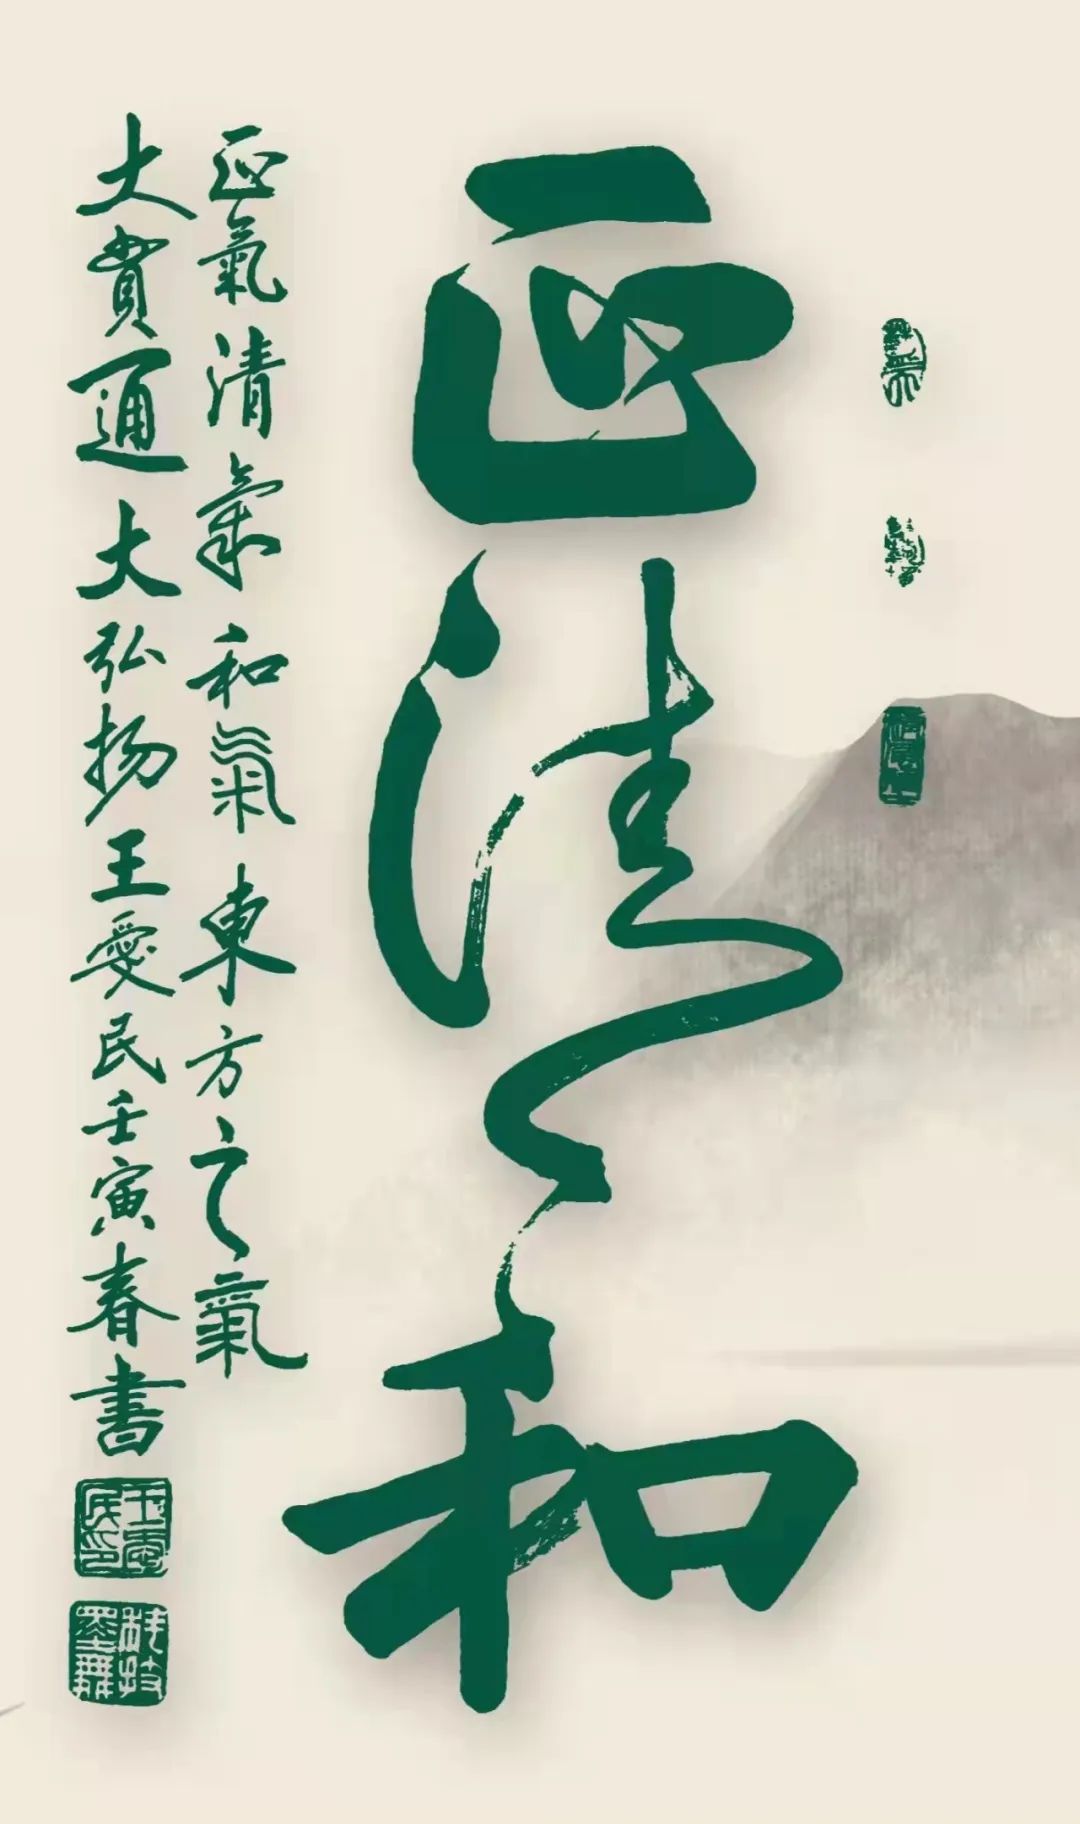 正清和
正氣清氣和氣東方之氣
大貫通大弘扬王愛民壬寅春書
王愛民印